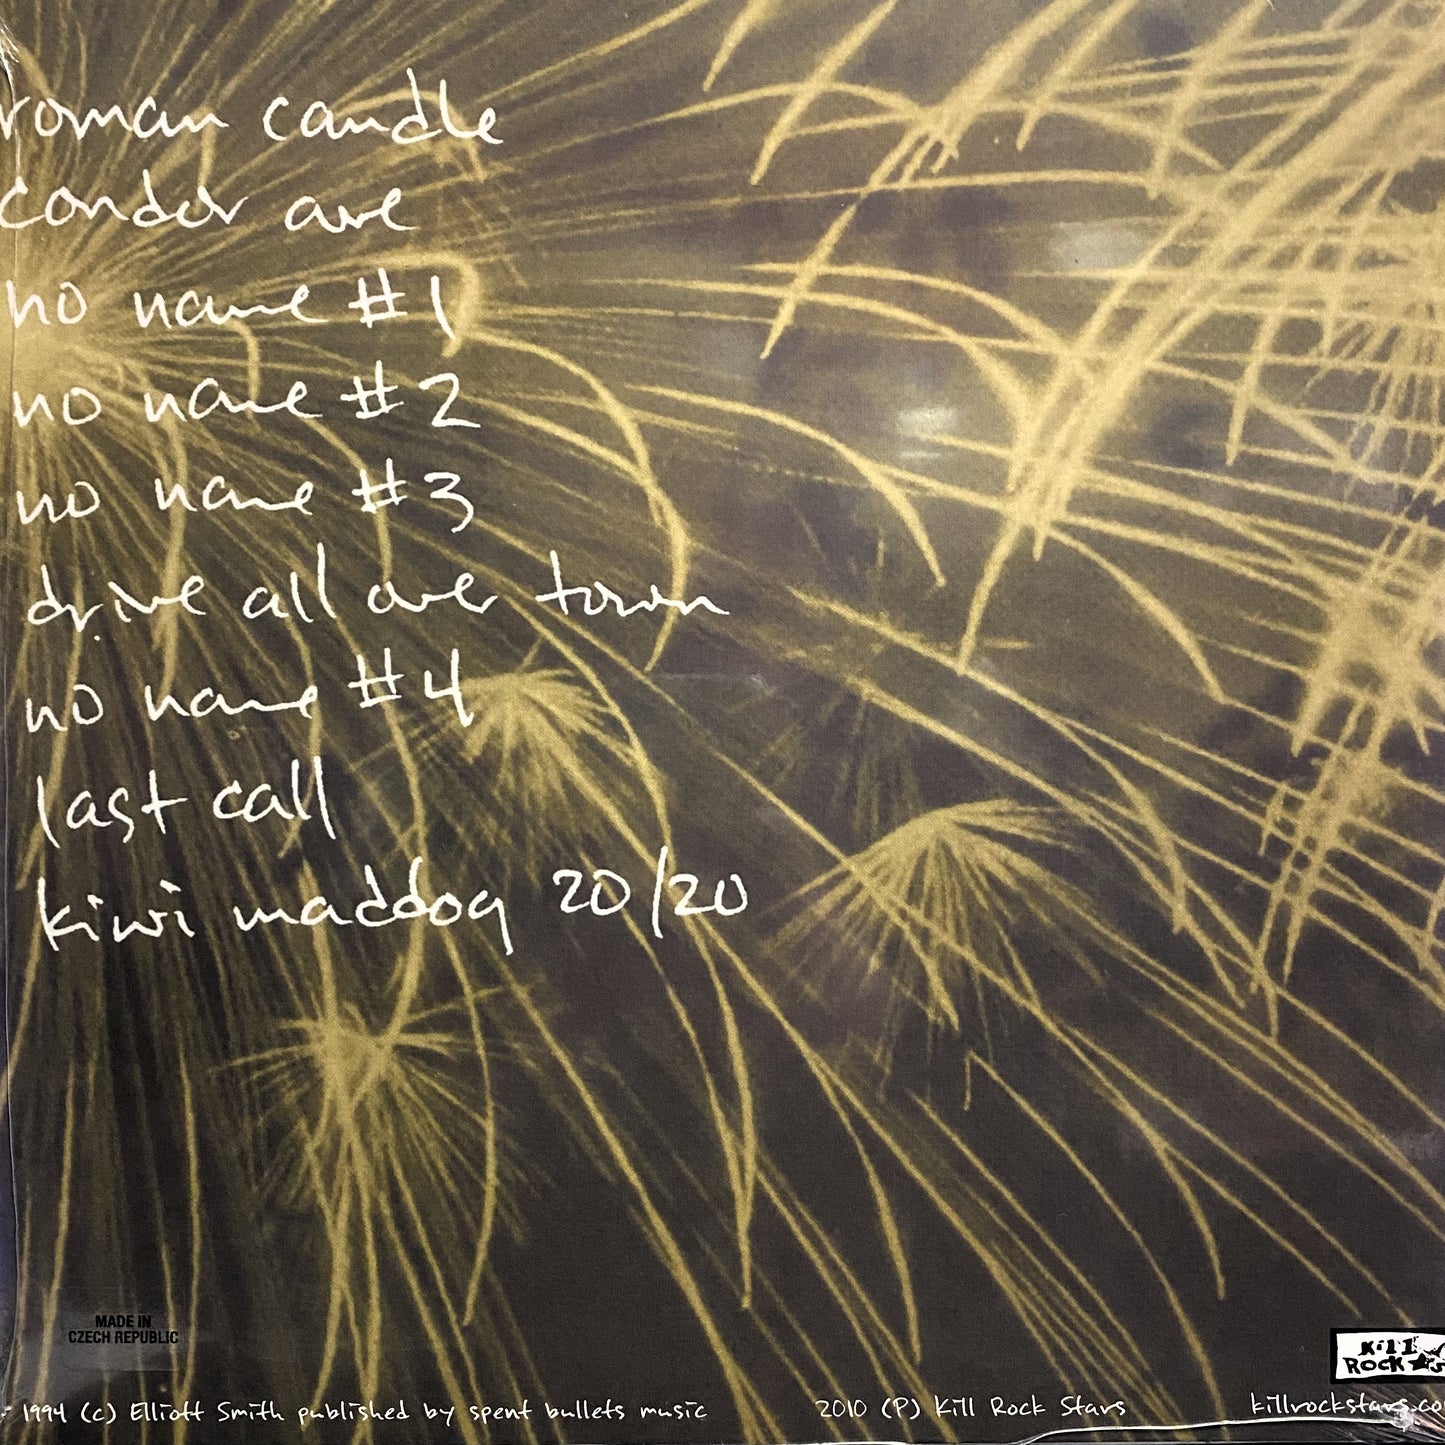 roman candle
condor ave
no name #1
no name #2
no name #3
drive all over town
no name #4
last call
kiwi maddog 20/20
MADE IN
CZECH REPUBLIC
Kill
Rock
1994 (c) Elliott Smith published by spent bullets music
2010 (P) Kill Rock Stars
killrockstars.co